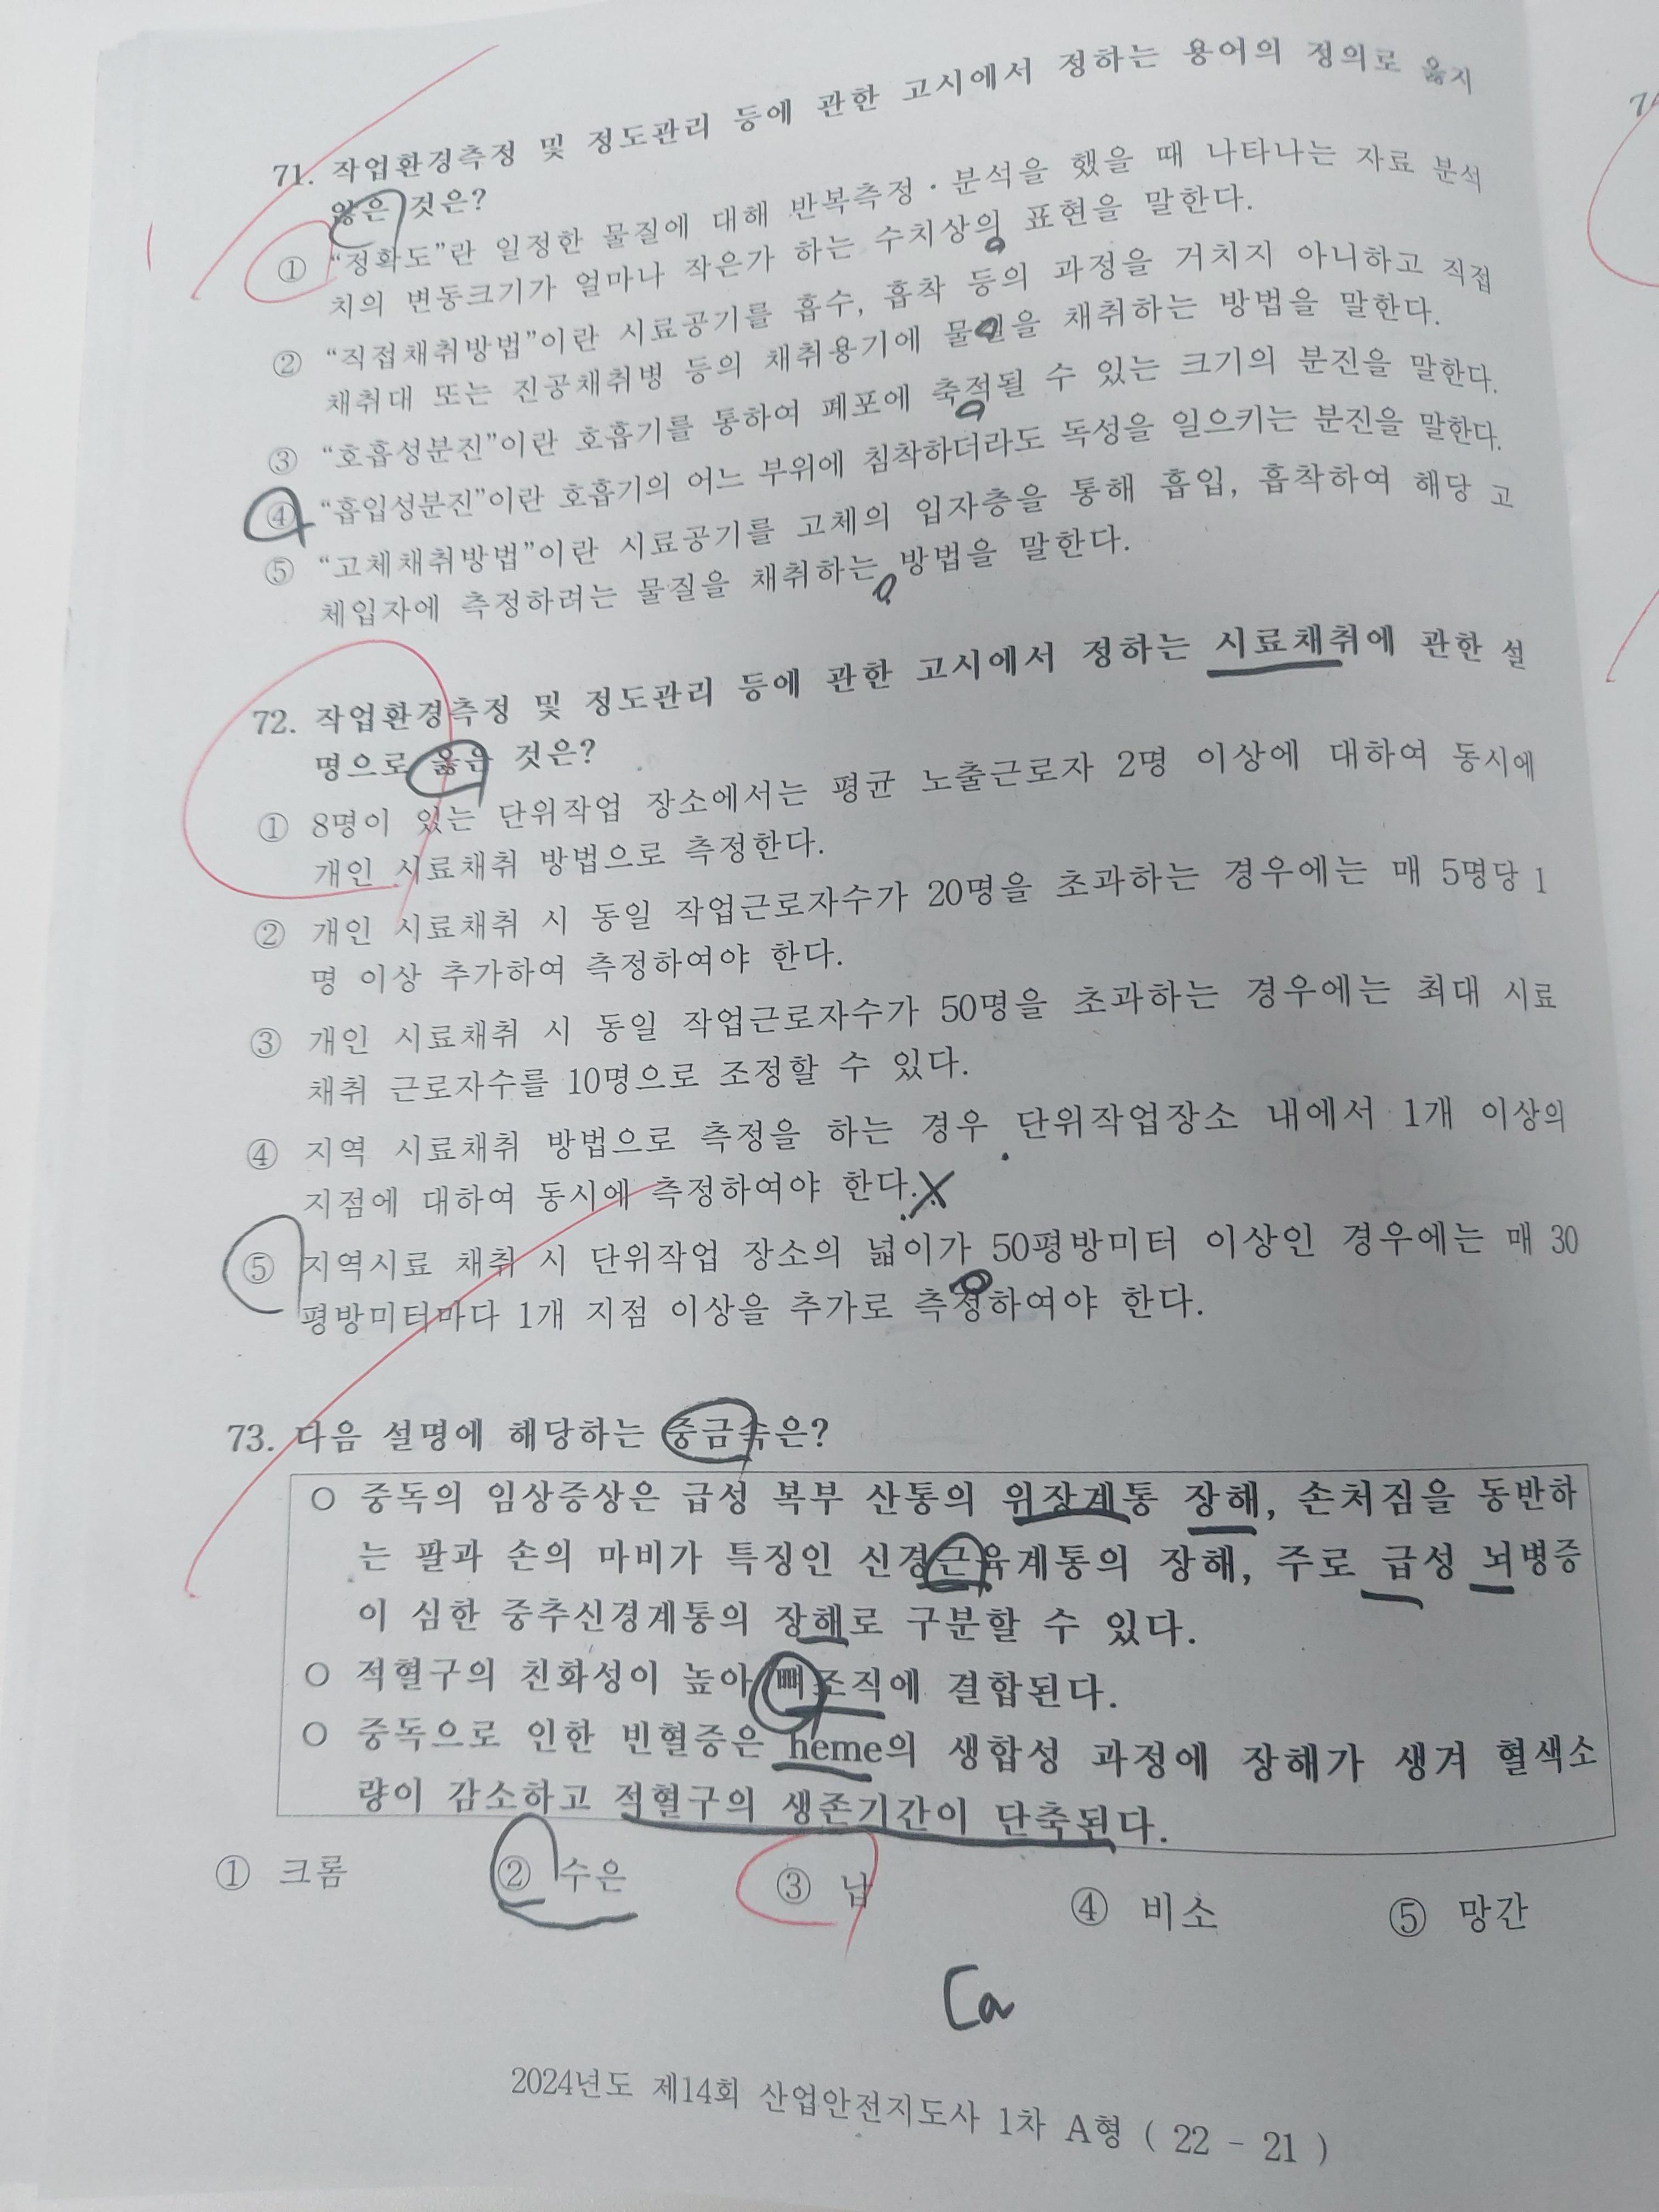 71. 작업환경측정 및 정도관리 등에 관한 고시에서 정하는 용어의 정의로 옳지
않은 것은?
① “정확도”란 일정한 물질에 대해 반복측정·분석을 했을 때 나타나는 자료 분석
치의 변동크기가 얼마나 작은가 하는 수치상의 표현을 말한다.
② “직접채취방법”이란 시료공기를 흡수, 흡착 등의 과정을 거치지 아니하고 직접
채취대 또는 진공채취병 등의 채취용기에 물질을 채취하는 방법을 말한다.
③ “호흡성분진”이란 호흡기를 통하여 폐포에 축적될 수 있는 크기의 분진을 말한다.
④ “흡입성분진”이란 호흡기의 어느 부위에 침착하더라도 독성을 일으키는 분진을 말한다.
⑤ “고체채취방법”이란 시료공기를 고체의 입자층을 통해 흡입, 흡착하여 해당 고
체입자에 측정하려는 물질을 채취하는 방법을 말한다.
72. 작업환경측정 및 정도관리 등에 관한 고시에서 정하는 시료채취에 관한 설
명으로 옳은 것은?
① 8명이 있는 단위작업 장소에서는 평균 노출근로자 2명 이상에 대하여 동시에
개인 시료채취 방법으로 측정한다.
② 개인 시료채취 시 동일 작업근로자수가 20명을 초과하는 경우에는 매 5명당 1
명 이상 추가하여 측정하여야 한다.
③ 개인 시료채취 시 동일 작업근로자수가 50명을 초과하는 경우에는 최대 시료
채취 근로자수를 10명으로 조정할 수 있다.
④ 지역 시료채취 방법으로 측정을 하는 경우 단위작업장소 내에서 1개 이상의
지점에 대하여 동시에 측정하여야 한다. X
⑤ 지역시료 채취 시 단위작업 장소의 넓이가 50평방미터 이상인 경우에는 매 30
평방미터마다 1개 지점 이상을 추가로 측정하여야 한다.
73. 다음 설명에 해당하는 중금속은?
○ 중독의 임상증상은 급성 복부 산통의 위장계통 장해, 손처짐을 동반하
는 팔과 손의 마비가 특징인 신경근육계통의 장해, 주로 급성 뇌병증
이 심한 중추신경계통의 장해로 구분할 수 있다.
○ 적혈구의 친화성이 높아 뼈조직에 결합된다.
○ 중독으로 인한 빈혈증은 heme의 생합성 과정에 장해가 생겨 혈색소
량이 감소하고 적혈구의 생존기간이 단축된다.
① 크롬 ② 수은 ③ 납 ④ 비소 ⑤ 망간
Ca
2024년도 제14회 산업안전지도사 1차 A형 ( 22 - 21 )